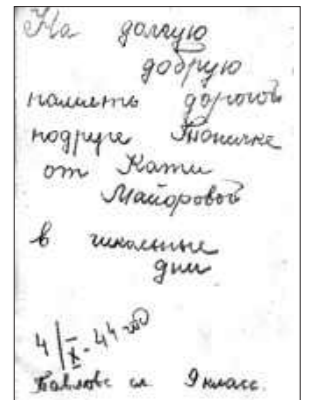 На долгую
добрую
память дорогой
подруге Тоничке
от Кати
Майоровой
в школьные
дни
4/X-44 год
Павловс сл 9 класс.